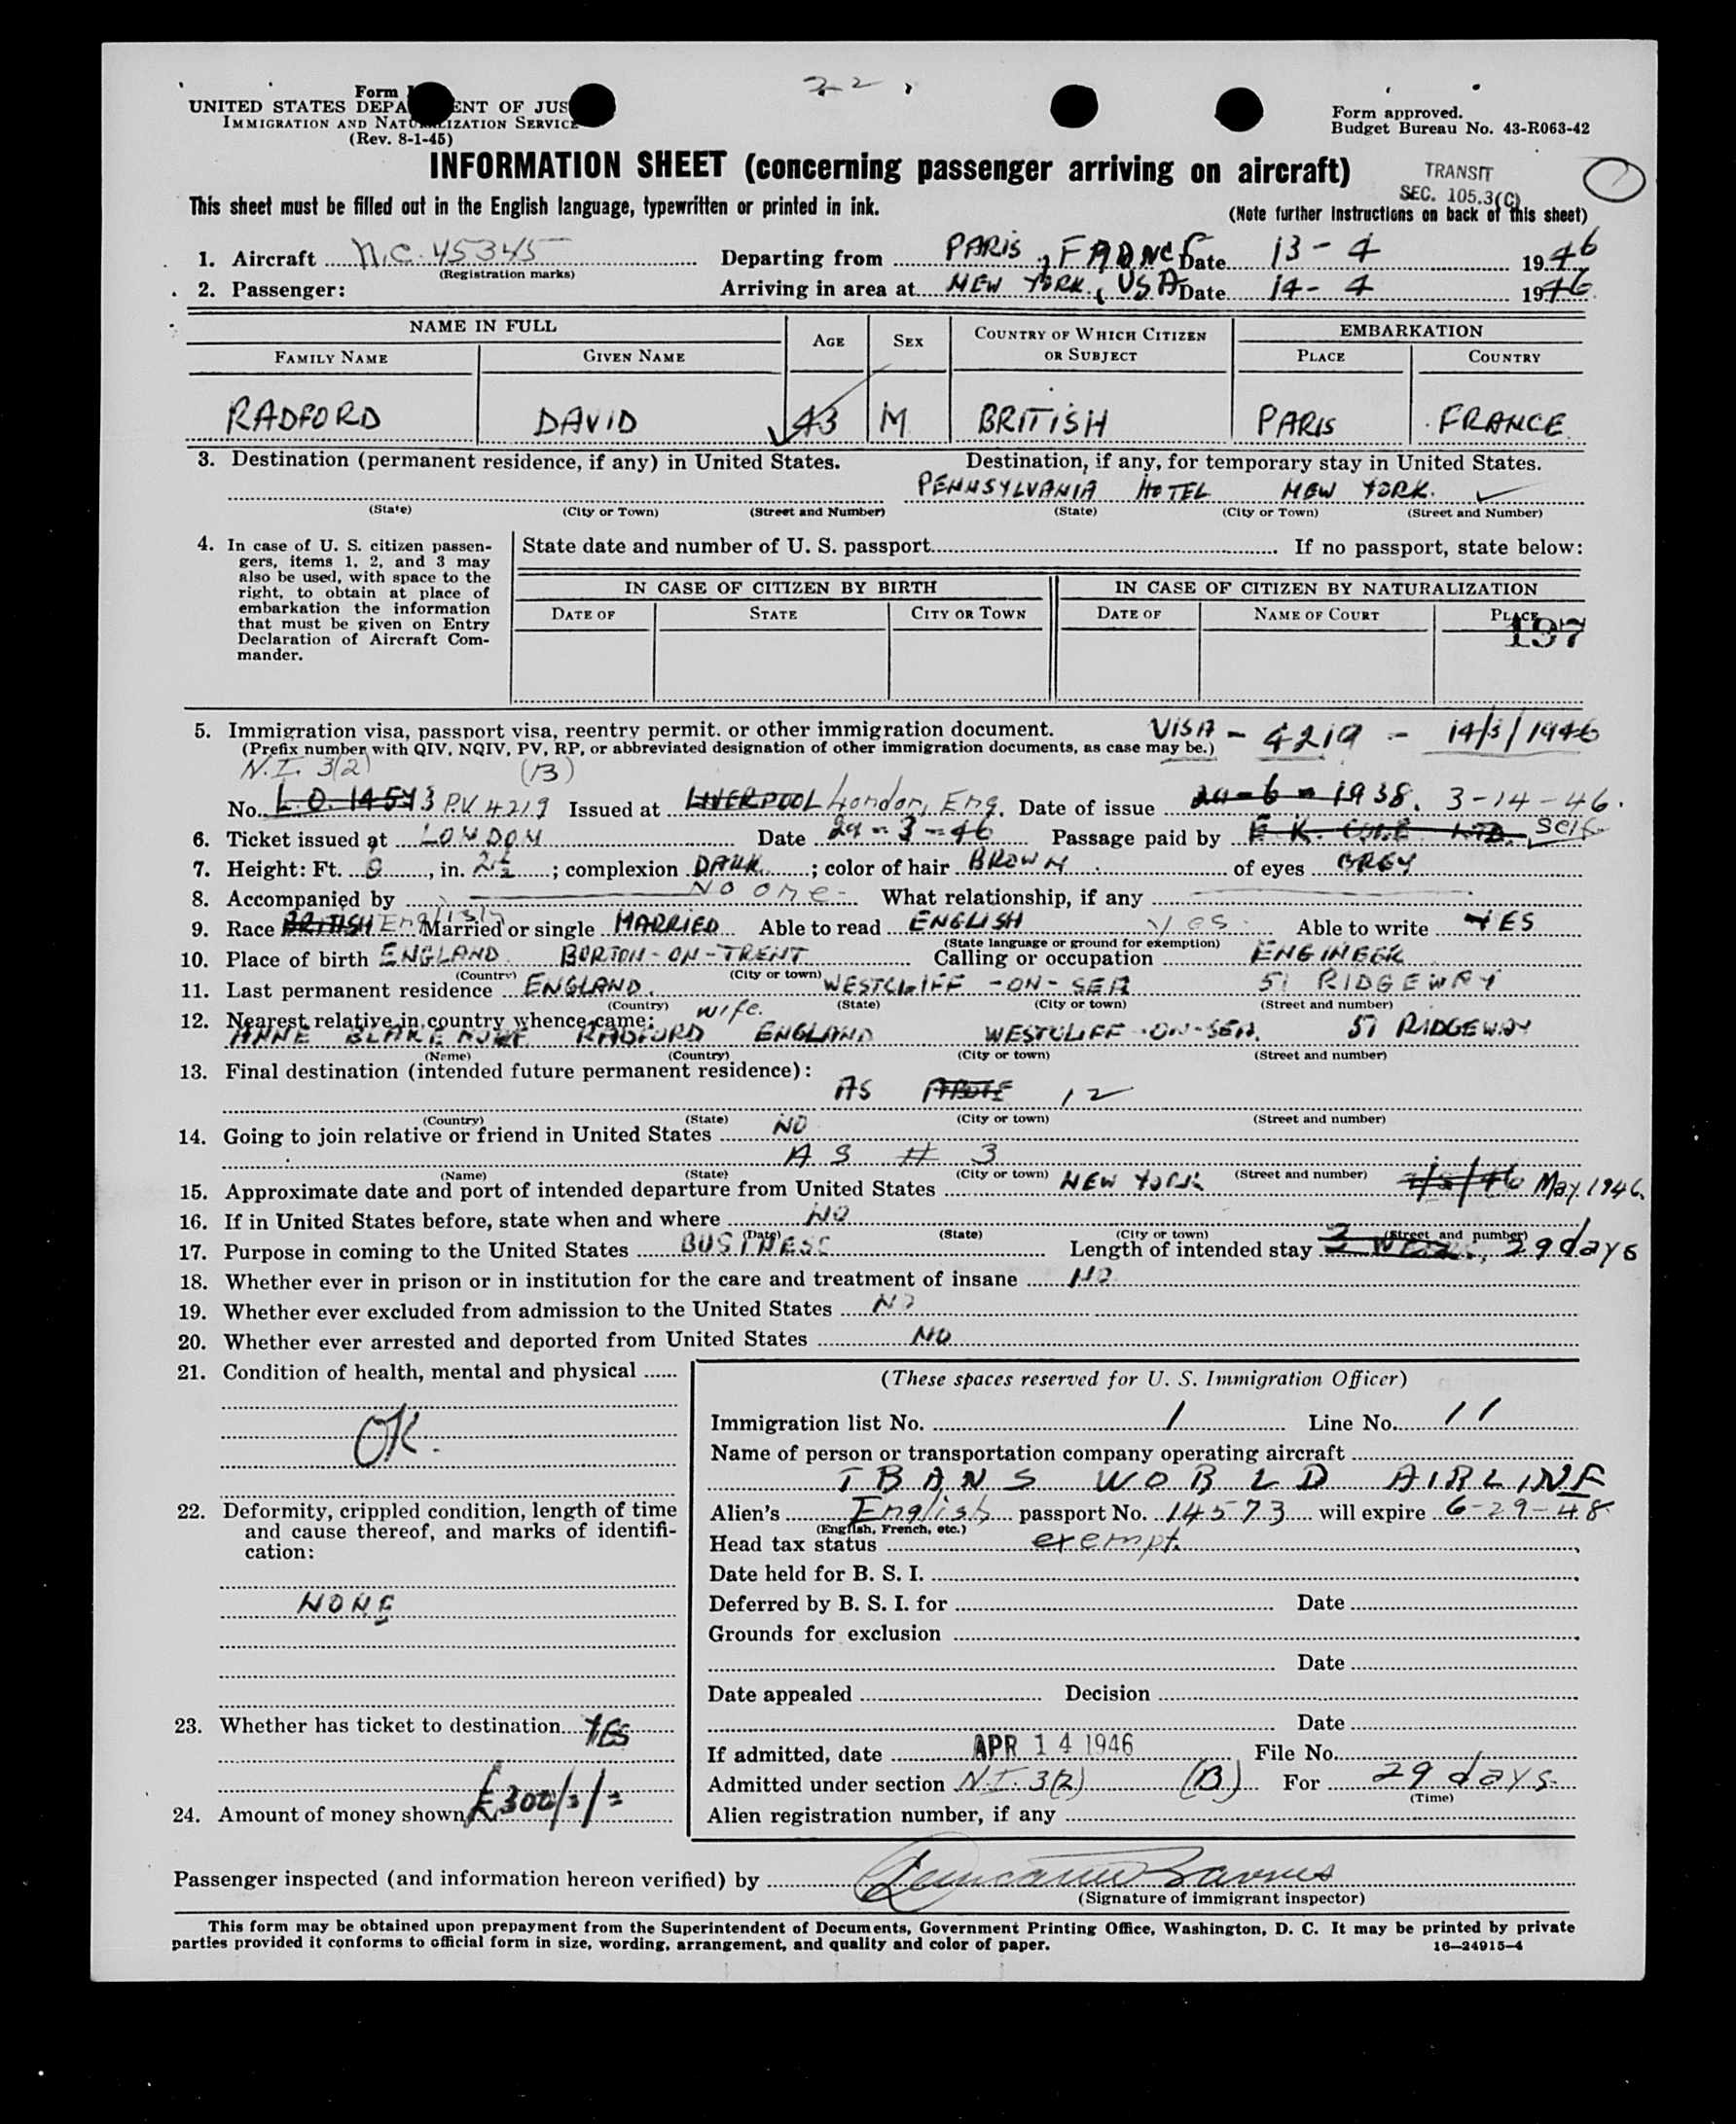 22
Form I
UNITED STATES DEPA ENT OF JUS
IMMIGRATION AND NATURALIZATION SERVICE
(Rev. 8-1-45)
Form approved.
Budget Bureau No. 43-R063-42
INFORMATION SHEET (concerning passenger arriving on aircraft)
TRANSIT
SEC. 105.3(C)
This sheet must be filled out in the English language, typewritten or printed in ink.
(Note further instructions on back of this sheet)
1. Aircraft N.C. 45345 Departing from PARIS, FRANCE Date 13-4 1946
(Registration marks)
2. Passenger: Arriving in area at NEW YORK, USA Date 14-4 1946
NAME IN FULL AGE SEX COUNTRY OF WHICH CITIZEN OR SUBJECT EMBARKATION
FAMILY NAME GIVEN NAME PLACE COUNTRY
RADFORD DAVID 43 M BRITISH PARIS FRANCE
3. Destination (permanent residence, if any) in United States. Destination, if any, for temporary stay in United States.
PENNSYLVANIA HOTEL NEW YORK.
(State) (City or Town) (Street and Number) (State) (City or Town) (Street and Number)
4. In case of U. S. citizen passen-
gers, items 1, 2, and 3 may
also be used, with space to the
right, to obtain at place of
embarkation the information
that must be given on Entry
Declaration of Aircraft Com-
mander.
State date and number of U. S. passport If no passport, state below:
IN CASE OF CITIZEN BY BIRTH IN CASE OF CITIZEN BY NATURALIZATION
DATE OF STATE CITY OR TOWN DATE OF NAME OF COURT PLACE
197
5. Immigration visa, passport visa, reentry permit, or other immigration document. VISA - 4219 - 14/3/1946
(Prefix number with QIV, NQIV, PV, RP, or abbreviated designation of other immigration documents, as case may be.)
N.I. 3(2) (B)
No. L.O. 14573 P.V. 4219 Issued at LIVERPOOL London, Eng. Date of issue 29-6-1938. 3-14-46.
6. Ticket issued at LONDON Date 29-3-46 Passage paid by E.K. COLE LTD. Self
7. Height: Ft. , in. 2½; complexion DARK; color of hair BROWN of eyes GREY
8. Accompanied by No one What relationship, if any
9. Race BRITISH English Married or single MARRIED Able to read ENGLISH yes Able to write YES
(State language or ground for exemption)
10. Place of birth ENGLAND BURTON-ON-TRENT Calling or occupation ENGINEER
(Country) (City or town)
11. Last permanent residence ENGLAND. WESTCLIFF-ON-SEA 51 RIDGEWAY
(Country) (State) (City or town) (Street and number)
12. Nearest relative in country whence came: wife.
ANNE RADFORD ENGLAND WESTCLIFF-ON-SEA. 51 RIDGEWAY
(Name) (Country) (City or town) (Street and number)
13. Final destination (intended future permanent residence):
AS ABOVE 12
(Country) (State) (City or town) (Street and number)
14. Going to join relative or friend in United States NO
AS # 3
(Name) (State) (City or town) (Street and number)
15. Approximate date and port of intended departure from United States NEW YORK May 1946
16. If in United States before, state when and where NO
(Date) (State) (City or town) (Street and number)
17. Purpose in coming to the United States BUSINESS Length of intended stay 3 WEEKS, 29 days
18. Whether ever in prison or in institution for the care and treatment of insane NO
19. Whether ever excluded from admission to the United States NO
20. Whether ever arrested and deported from United States NO
21. Condition of health, mental and physical
OK.
22. Deformity, crippled condition, length of time
and cause thereof, and marks of identifi-
cation:
NONE
23. Whether has ticket to destination YES
24. Amount of money shown £300/-/-
(These spaces reserved for U. S. Immigration Officer)
Immigration list No. 1 Line No. 11
Name of person or transportation company operating aircraft
TRANS WORLD AIRLINE
Alien's English passport No. 14573 will expire 6-29-48
(English, French, etc.)
Head tax status exempt.
Date held for B. S. I.
Deferred by B. S. I. for Date
Grounds for exclusion
Date
Date appealed Decision
Date
If admitted, date APR 14 1946 File No.
Admitted under section N.I. 3(2) (B) For 29 days
(Time)
Alien registration number, if any
Passenger inspected (and information hereon verified) by
(Signature of immigrant inspector)
This form may be obtained upon prepayment from the Superintendent of Documents, Government Printing Office, Washington, D. C. It may be printed by private
parties provided it conforms to official form in size, wording, arrangement, and quality and color of paper.
16—24915-4